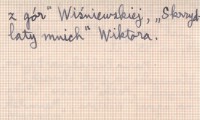 z gór" Wiśniewskiej, „Skrzyd-
laty mnich" Wiktora.